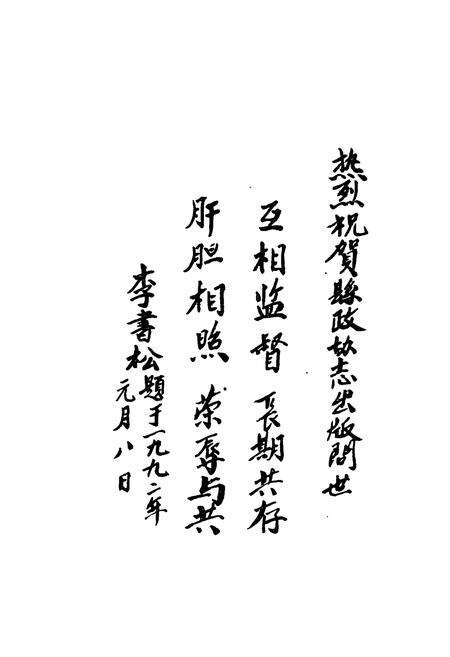 热烈祝贺縣政协志出版問世
互相监督 長期共存
肝胆相照 荣辱与共
李書松題于一九九二年
元月八日